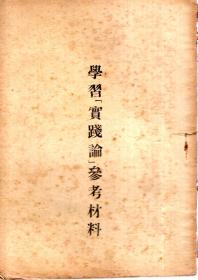 學習「實踐論」參考材料